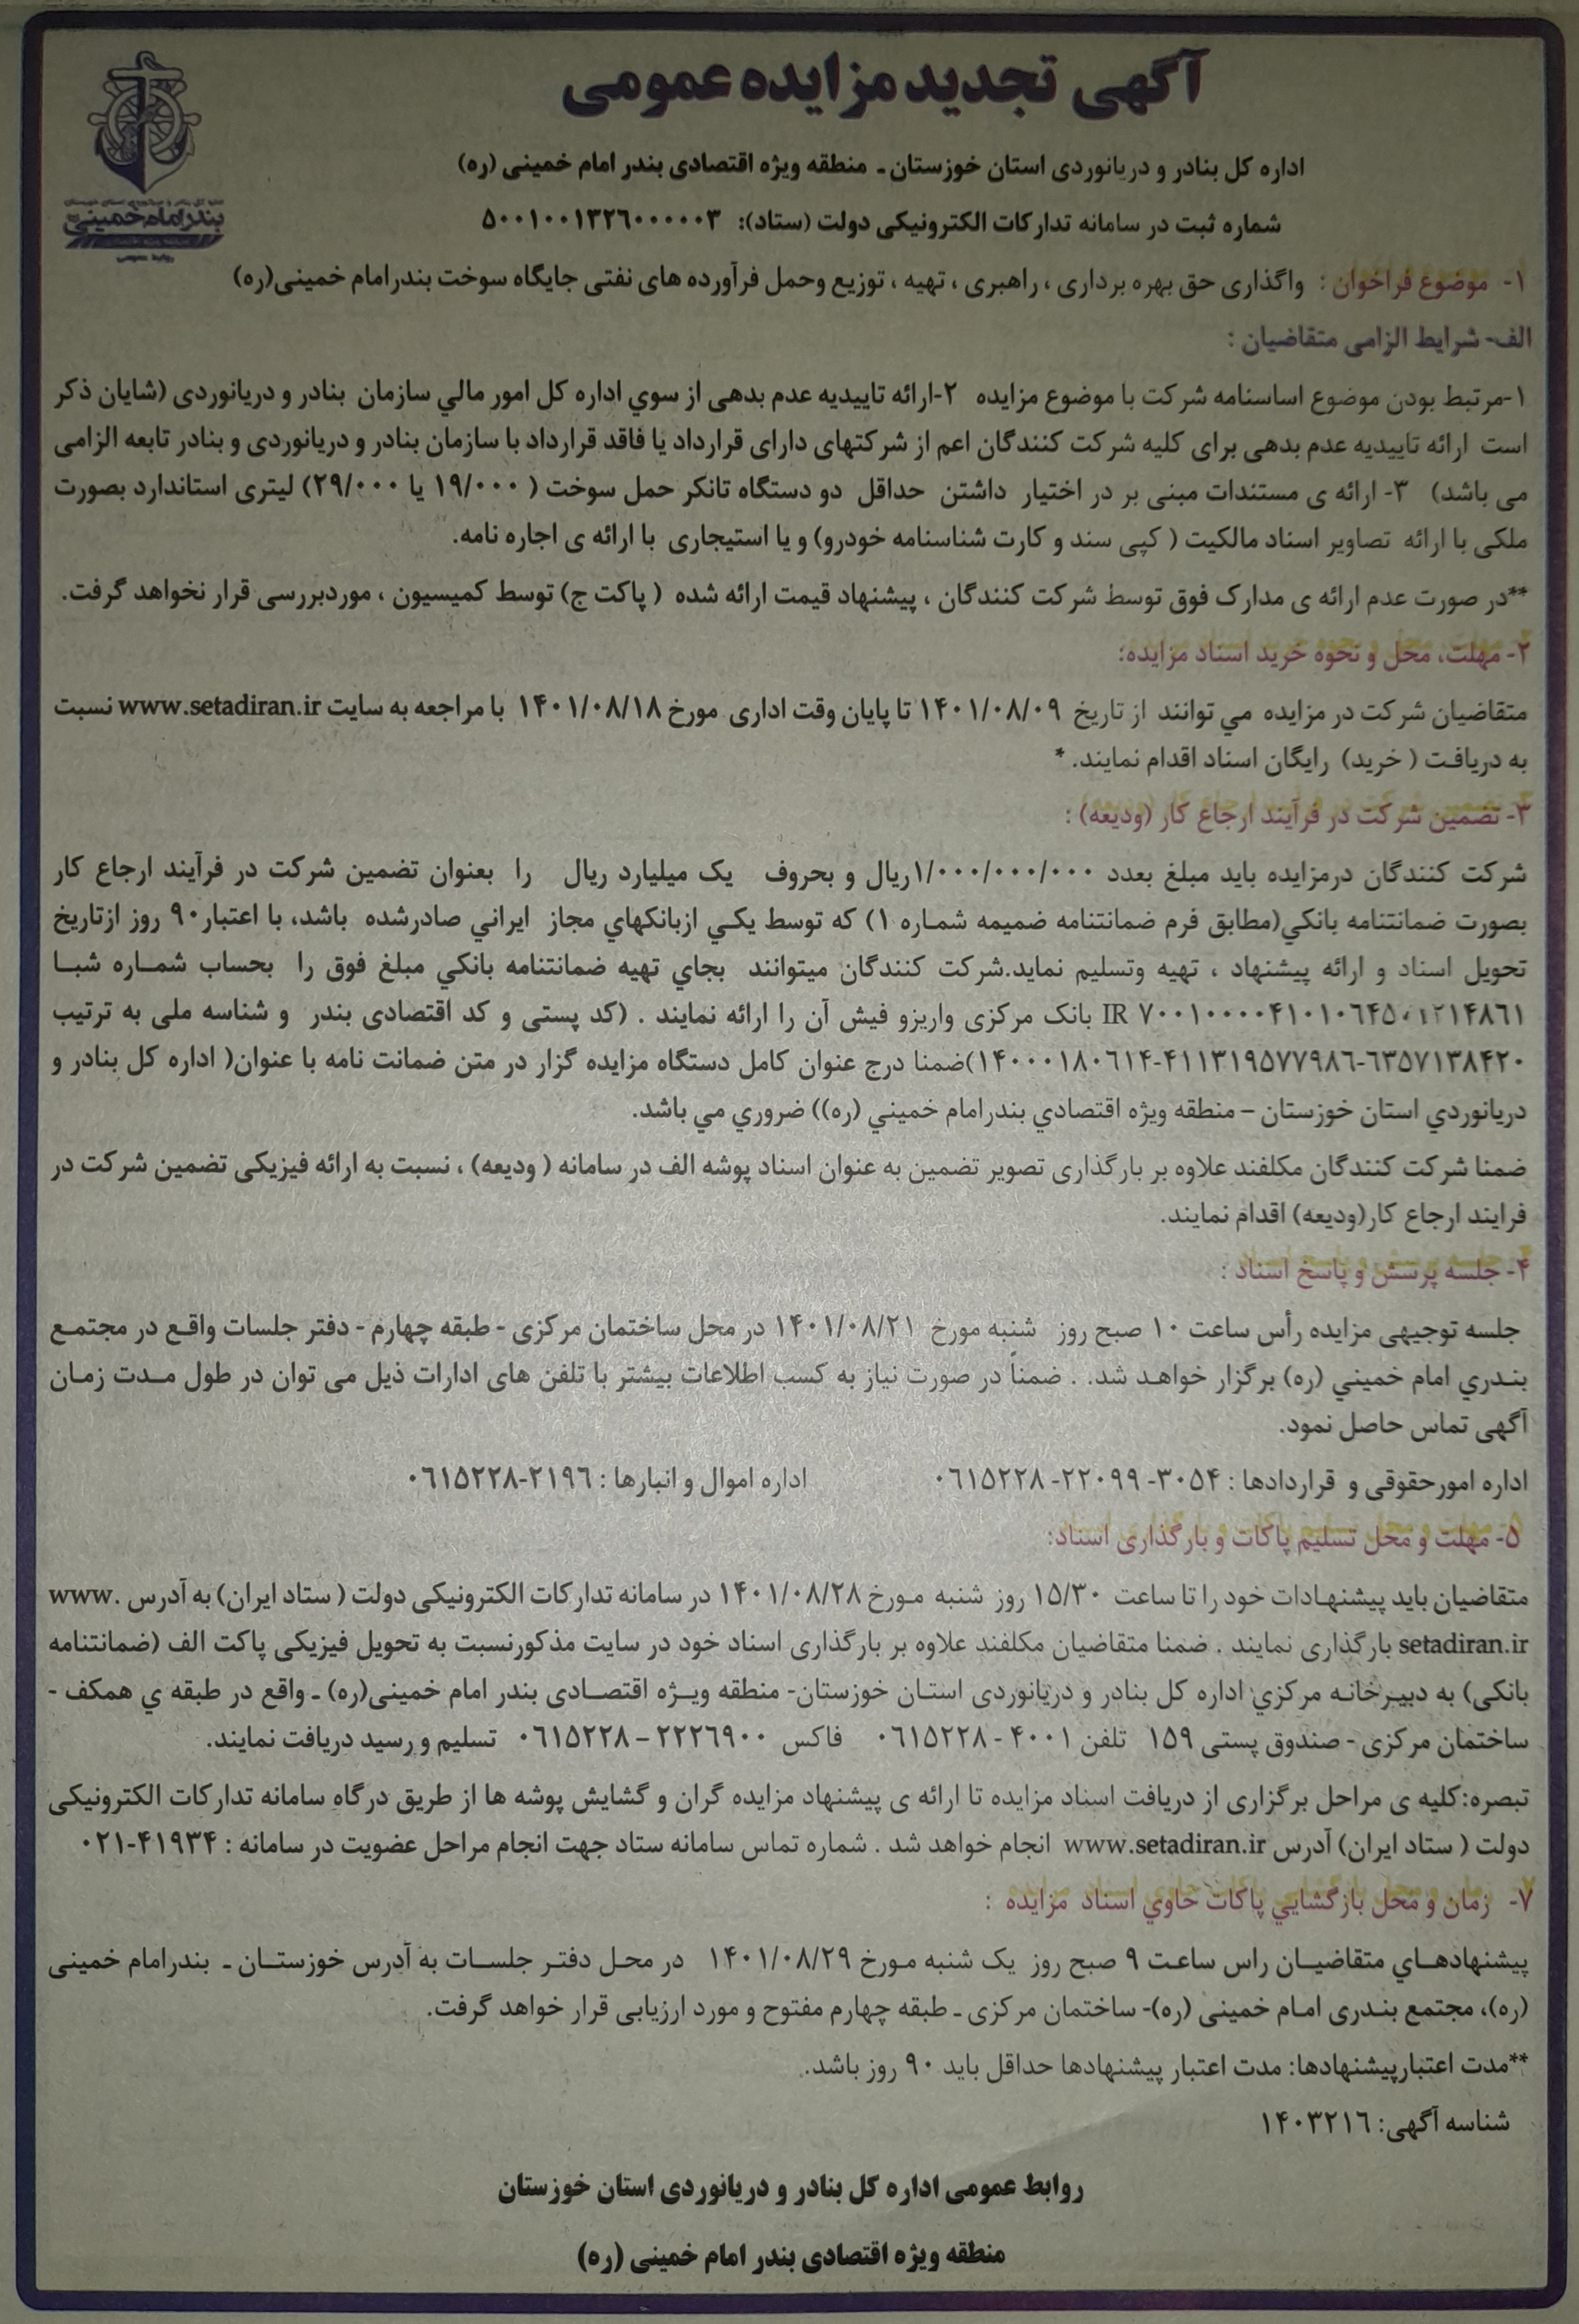 آگهی تجدید مزایده عمومی
اداره کل بنادر و دریانوردی استان خوزستان ـ منطقه ویژه اقتصادی بندر امام خمینی (ره)
بندرامام‌خمینی
روابط عمومی
شماره ثبت در سامانه تدارکات الکترونیکی دولت (ستاد): ۵۰۰۱۰۰۱۳۲۶۰۰۰۰۰۳
۱- موضوع فراخوان : واگذاری حق بهره برداری ، راهبری ، تهیه ، توزیع وحمل فرآورده های نفتی جایگاه سوخت بندرامام خمینی(ره)
الف- شرایط الزامی متقاضیان :
۱-مرتبط بودن موضوع اساسنامه شرکت با موضوع مزایده ۲-ارائه تاییدیه عدم بدهی از سوي اداره کل امور مالي سازمان بنادر و دریانوردی (شایان ذکر
است ارائه تاییدیه عدم بدهی برای کلیه شرکت کنندگان اعم از شرکتهای دارای قرارداد یا فاقد قرارداد با سازمان بنادر و دریانوردی و بنادر تابعه الزامی
می باشد) ۳- ارائه ی مستندات مبنی بر در اختیار داشتن حداقل دو دستگاه تانکر حمل سوخت ( ۱۹/۰۰۰ یا ۲۹/۰۰۰) لیتری استاندارد بصورت
ملکی با ارائه تصاویر اسناد مالکیت ( کپی سند و کارت شناسنامه خودرو) و یا استیجاری با ارائه ی اجاره نامه.
**در صورت عدم ارائه ی مدارک فوق توسط شرکت کنندگان ، پیشنهاد قیمت ارائه شده ( پاکت ج) توسط کمیسیون ، موردبررسی قرار نخواهد گرفت.
۲- مهلت، محل و نحوه خرید اسناد مزایده:
متقاضیان شرکت در مزایده مي توانند از تاریخ ۱۴۰۱/۰۸/۰۹ تا پایان وقت اداری مورخ ۱۴۰۱/۰۸/۱۸ با مراجعه به سایت www.setadiran.ir نسبت
به دریافت ( خرید) رایگان اسناد اقدام نمایند. *
۳- تضمین شرکت در فرآیند ارجاع کار (ودیعه) :
شرکت کنندگان درمزایده باید مبلغ بعدد ۱/۰۰۰/۰۰۰/۰۰۰ریال و بحروف یک میلیارد ریال را بعنوان تضمین شرکت در فرآیند ارجاع کار
بصورت ضمانتنامه بانکي(مطابق فرم ضمانتنامه ضمیمه شماره ۱) که توسط یکي ازبانکهاي مجاز ایراني صادرشده باشد، با اعتبار۹۰ روز ازتاریخ
تحویل اسناد و ارائه پیشنهاد ، تهیه وتسلیم نماید.شرکت کنندگان میتوانند بجاي تهیه ضمانتنامه بانکي مبلغ فوق را بحساب شماره شبا
IR بانک مرکزی واریزو فیش آن را ارائه نمایند . (کد پستی و کد اقتصادی بندر و شناسه ملی به ترتیب
۶۳۵۷۱۳۸۴۲۰-۴۱۱۳۱۹۵۷۷۹۸۶-۱۴۰۰۰۱۸۰۶۱۴)ضمنا درج عنوان کامل دستگاه مزایده گزار در متن ضمانت نامه با عنوان( اداره کل بنادر و
دریانوردي استان خوزستان – منطقه ویژه اقتصادي بندرامام خمیني (ره)) ضروري مي باشد.
ضمنا شرکت کنندگان مکلفند علاوه بر بارگذاری تصویر تضمین به عنوان اسناد پوشه الف در سامانه ( ودیعه) ، نسبت به ارائه فیزیکی تضمین شرکت در
فرایند ارجاع کار(ودیعه) اقدام نمایند.
۴- جلسه پرسش و پاسخ اسناد :
جلسه توجیهی مزایده رأس ساعت ۱۰ صبح روز شنبه مورخ ۱۴۰۱/۰۸/۲۱ در محل ساختمان مرکزی - طبقه چهارم - دفتر جلسات واقع در مجتمع
بندري امام خمیني (ره) برگزار خواهد شد. . ضمناً در صورت نیاز به کسب اطلاعات بیشتر با تلفن های ادارات ذیل می توان در طول مدت زمان
آگهی تماس حاصل نمود.
اداره امورحقوقی و قراردادها : ۳۰۵۴- ۲۲۰۹۹- ۰۶۱۵۲۲۸ اداره اموال و انبارها : ۲۱۹۶-۰۶۱۵۲۲۸
۵- مهلت و محل تسلیم پاکات و بارگذاری اسناد:
متقاضیان باید پیشنهادات خود را تا ساعت ۱۵/۳۰ روز شنبه مورخ ۱۴۰۱/۰۸/۲۸ در سامانه تدارکات الکترونیکی دولت ( ستاد ایران) به آدرس www.
setadiran.ir بارگذاری نمایند . ضمنا متقاضیان مکلفند علاوه بر بارگذاری اسناد خود در سایت مذکورنسبت به تحویل فیزیکی پاکت الف (ضمانتنامه
بانکی) به دبیرخانه مرکزي اداره کل بنادر و دریانوردی استان خوزستان- منطقه ویژه اقتصادی بندر امام خمینی(ره) ـ واقع در طبقه ي همکف -
ساختمان مرکزی - صندوق پستی ۱۵۹ تلفن ۴۰۰۱ - ۰۶۱۵۲۲۸ فاکس ۲۲۲۶۹۰۰ – ۰۶۱۵۲۲۸ تسلیم و رسید دریافت نمایند.
تبصره:کلیه ی مراحل برگزاری از دریافت اسناد مزایده تا ارائه ی پیشنهاد مزایده گران و گشایش پوشه ها از طریق درگاه سامانه تدارکات الکترونیکی
دولت ( ستاد ایران) آدرس www.setadiran.ir انجام خواهد شد . شماره تماس سامانه ستاد جهت انجام مراحل عضویت در سامانه : ۴۱۹۳۴-۰۲۱
۷- زمان و محل بازگشایي پاکات حاوي اسناد مزایده :
پیشنهادهاي متقاضیان راس ساعت ۹ صبح روز یک شنبه مورخ ۱۴۰۱/۰۸/۲۹ در محل دفتر جلسات به آدرس خوزستان ـ بندرامام خمینی
(ره)، مجتمع بندری امام خمینی (ره)- ساختمان مرکزی ـ طبقه چهارم مفتوح و مورد ارزیابی قرار خواهد گرفت.
**مدت اعتبارپیشنهادها: مدت اعتبار پیشنهادها حداقل باید ۹۰ روز باشد.
شناسه آگهی: ۱۴۰۳۲۱۶
روابط عمومی اداره کل بنادر و دریانوردی استان خوزستان
منطقه ویژه اقتصادی بندر امام خمینی (ره)